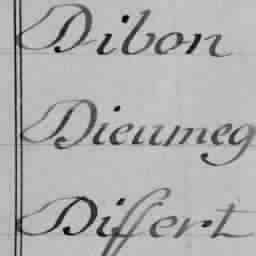 Dibon
Dieumeg
Differt